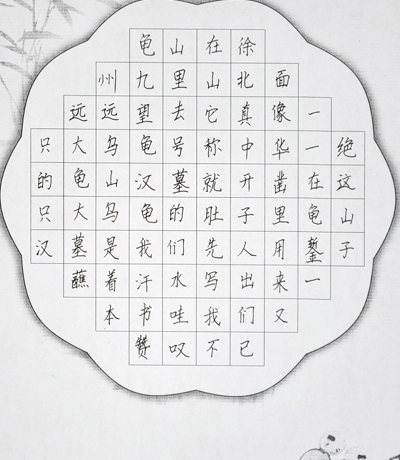 龟山在徐
州九里山北面
远远望去它真像一
只大乌龟号称中华一绝
的龟山汉墓就开凿在这
只大乌龟的肚子里龟山
汉墓是我们先人用錾子
蘸着汗水写出来一
本书哇我们又
赞叹不已